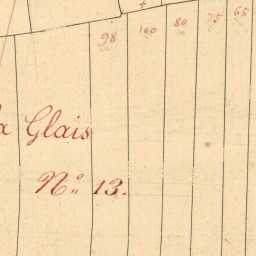 98 100 80 75 65
la Glais
No. 13.